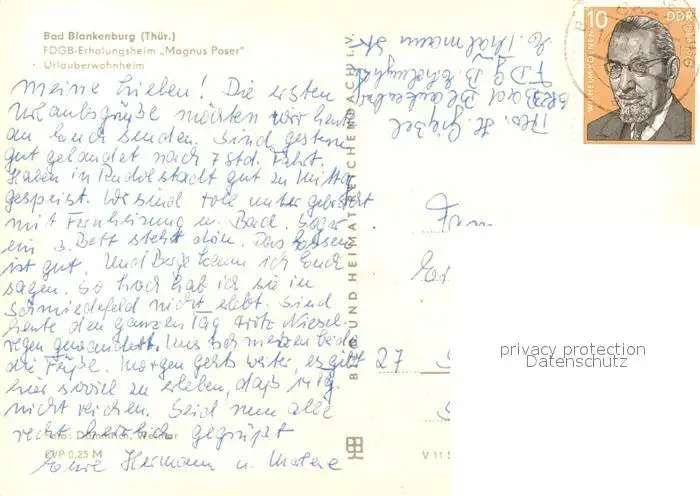 Bad Blankenburg (Thür.)
FDGB-Erholungsheim „Magnus Poser"
Urlauberwohnheim
Meine Lieben! Die ersten
Urlaubsgrüße möchten wir heute
an Euch senden. Sind gestern
gut gelandet nach 7 Std. Fahrt.
Haben in Rudolstadt gut zu Mittag
gespeist. Wir sind toll untergebracht
mit Fernheizung u. Bad. Sogar
ein 3. Bett steht drin. Das Essen
ist gut. Und Berge kann ich Euch
sagen. So hoch hab ich sie in
Schmiedefeld nicht erlebt. Sind
heute den ganzen Tag trotz Niesel-
regen gewandert. Uns schmerzen beide
die Füße. Morgen gehts weiter, es gibt
hier soviel zu erleben, daß
nicht reichen. Seid nun alle
recht herzlich gegrüßt
Eure Hermann u.
Foto: Dämmrich, Weimar
EVP 0,25 M
BILD UND HEIMAT REICHENBACH I. V.
V 11
H.
Bad Blankenburg
FDGB Erholungsheim
Thälmann
27
10
DDR
WILHELM KÜLZ
privacy protection
Datenschutz